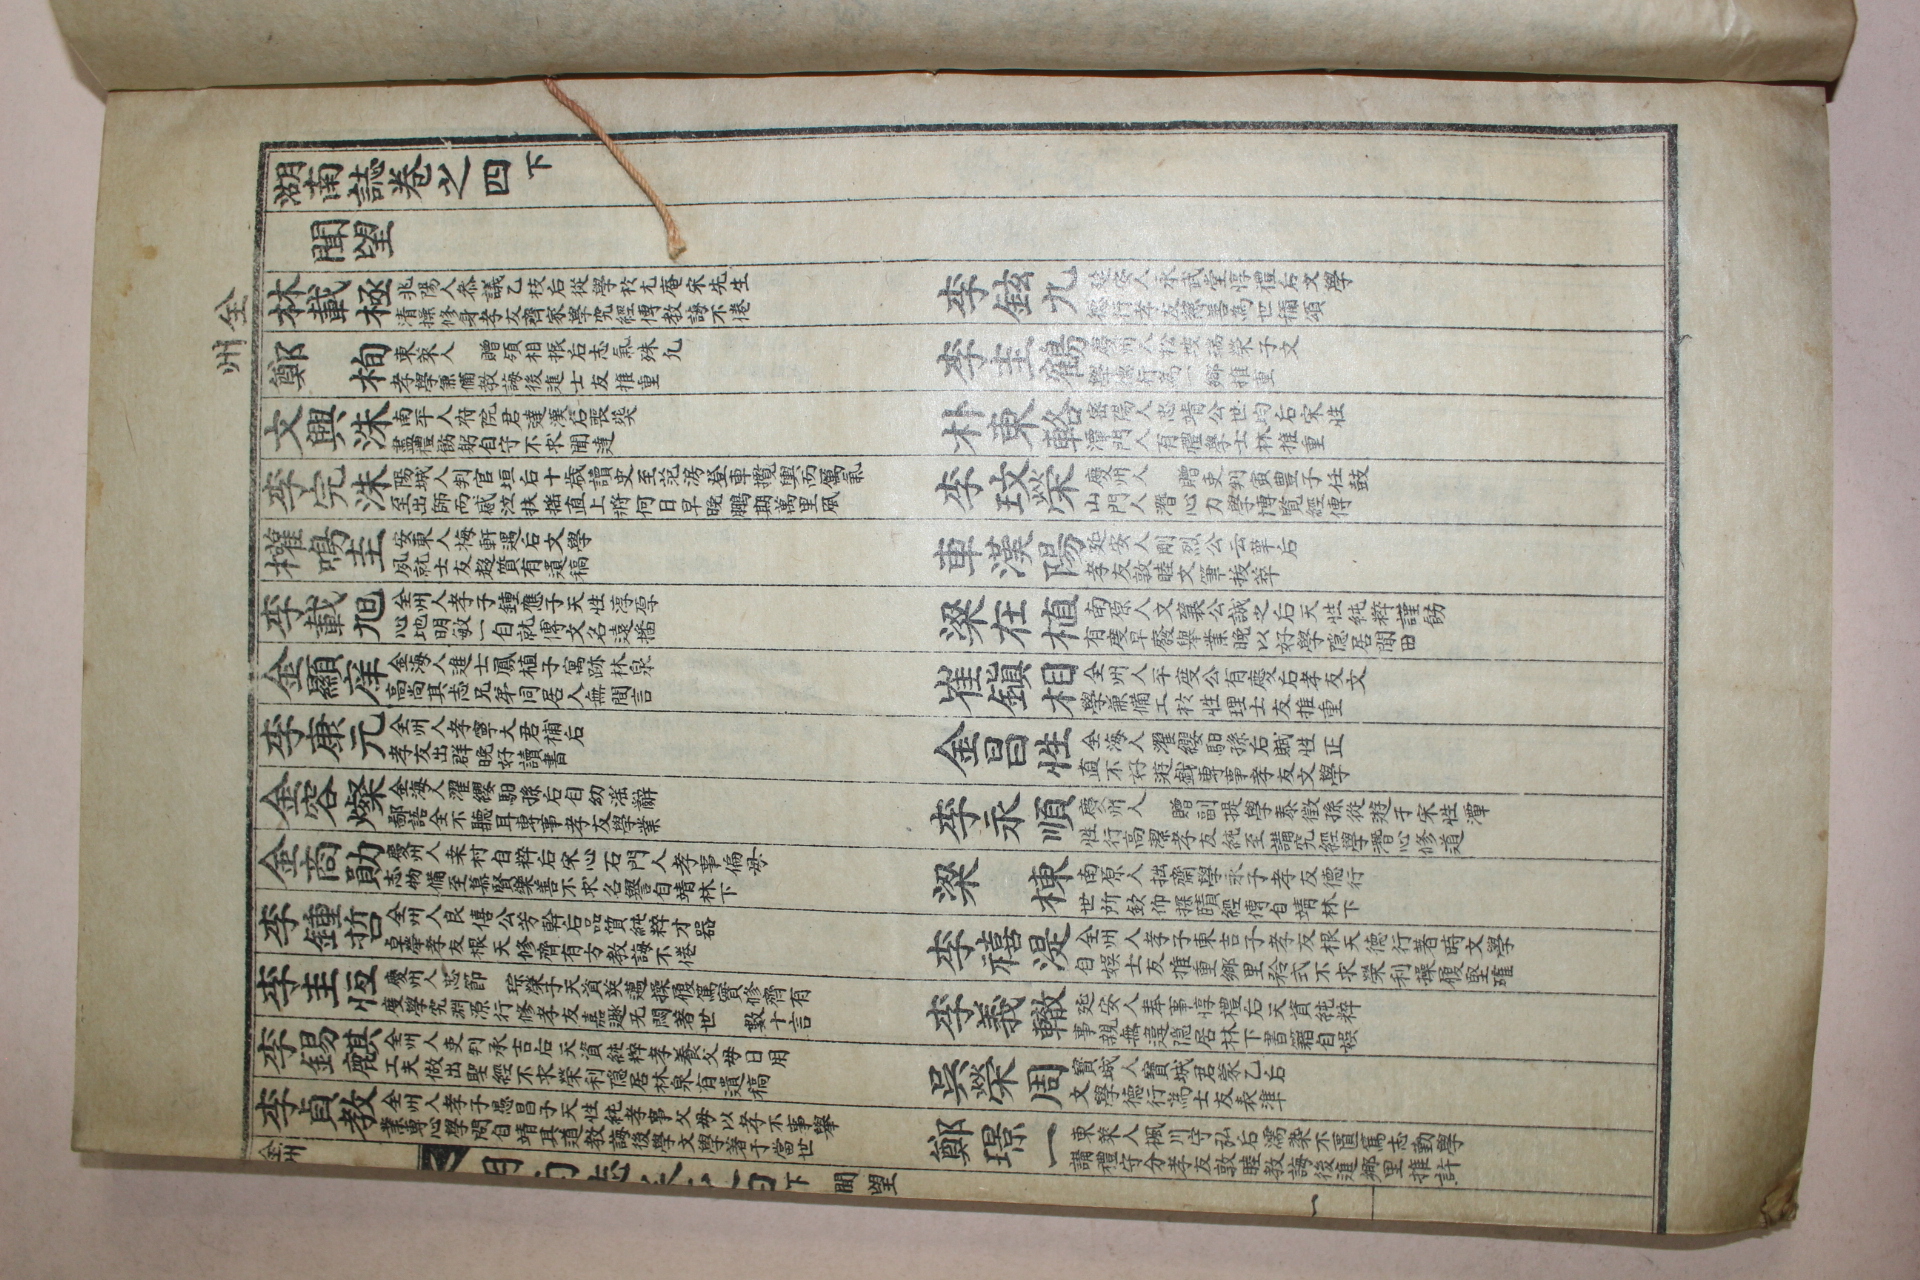 全州
湖南誌卷之四 下
聞望
林載極 兆陽人叅議乙枝后從學於尤庵宋先生
清操修身孝友齊家學究經傳教誨不倦
李鉉九 延安人永武堂惇禮后文學
德行孝友慈善為世稱頌
鄭 栒 東萊人 贈領相振后志氣殊凡
孝學兼備教誨後進士友推重
李圭鶴 慶州人松坡瑞榮子文
學德行為一鄉推重
文興洙 南平人府院君達漢后喪葬
盡禮飭躬自守不求聞達
朴東輅 密陽人忠靖公世均后宋性
潭門人有禮學士林推重
李完洙 陽城人判官垣后十歲讀史至范滂登車攬輿而厲氣
至出師而感泣扶搖直上將何日早晚鵬期萬里風
李玟榮 慶州人 贈吏判寅豊子任鼓
山門人潛心力學博覽經傳
權鳴圭 安東人梅軒遇后文學
夙就士友趍質有遺稿
車漢陽 延安人剛烈公云革后
孝友敦睦文筆拔萃
李載旭 全州人孝子鍾應子天性淳厚
心地明敏一自就傅文名遠播
梁在植 南原人文襄公誠之后天性純粹謹飭
有度早廢舉業晚以好學隱居閒田
金顯庠 金海人進士鳳植子寓跡林泉
高尚其志兄弟同居人無間言
崔鎮相 全州人平度公有慶后孝友文
學兼備工於性理士友推重
李康元 全州人孝寧大君補后
孝友出群晚好讀書
金昌性 金海人濯纓馹孫后賦性正
直不好遊戱專事孝友文學
金容燦 金海人濯纓馹孫后自幼滛辭
鄙語全不聽耳專事孝友學業
李永順 慶州人 贈副提學泰徵孫從遊于宋性潭
性行高潔孝友純至講究經學潛心修道
金商勛 慶州人桒村自粹后宋心石門人孝事偏母
志物備至慕賢樂善不求名譽自靖林下
梁 棟 南原人拙齋學永子孝友德行
世所欽仰探賾經傳自靖林下
李鍾哲 全州人良僖公芳幹后品質純粹才器
卓犖孝友根天修齊有方教誨不倦
李禧湜 全州人孝子東吉子孝友根天德行著時文學
自娛士友推重鄉里矜式不求榮利操履堅確
李圭恒 慶州人忠節 琮榮子天資英邁操履篤實修齊有
度學究淵源行修孝友嘉遯旡悶著世 數十言
李義轍 延安人奉事惇禮后天資純粹
事親無違隱居林下書籍自娛
李錫麒 全州人吏判承吉后天資純粹孝養父母日用
工夫做出聖經不求榮利隱居林泉有遺稿
吳榮周 寳城人寳城君蒙乙后
文學德行為士友表準
李貞教 全州人孝子愚昌子天性純孝事父母以孝不事舉
業專心學問自靖其道教誨後學文學著于當世
鄭璟一 東萊人楓川守弘后濡染不匱篤志勤學
講禮守分孝友敦睦教誨後進鄉里推許
全州
湖南誌卷之四下 聞望 一